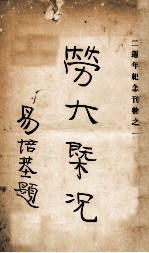 二週年紀念刊物之一
勞大槪況
易培基題